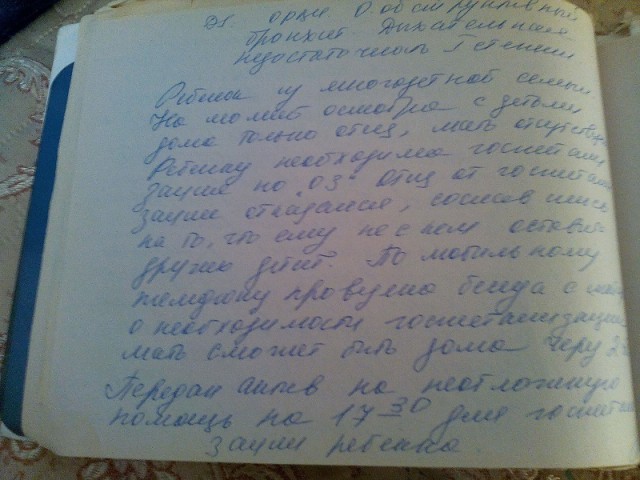 Ds. ОРВИ. О. обструктивный
бронхит. Дыхательная
недостаточность I степени
Ребёнок из многодетной семьи
На момент осмотра с детьми
дома только отец, мать отсутству
Ребёнку необходима госпитали
зация по „03" Отец от госпитали
зации отказался, сославшись
на то, что ему не с кем остави
других детей. По мобильному
телефону проведена беседа с мат
о необходимости госпитализации
мать сможет быть дома через 2
Передан актив на неотложную
помощь на 17 30 для госпитали
зации ребёнка.